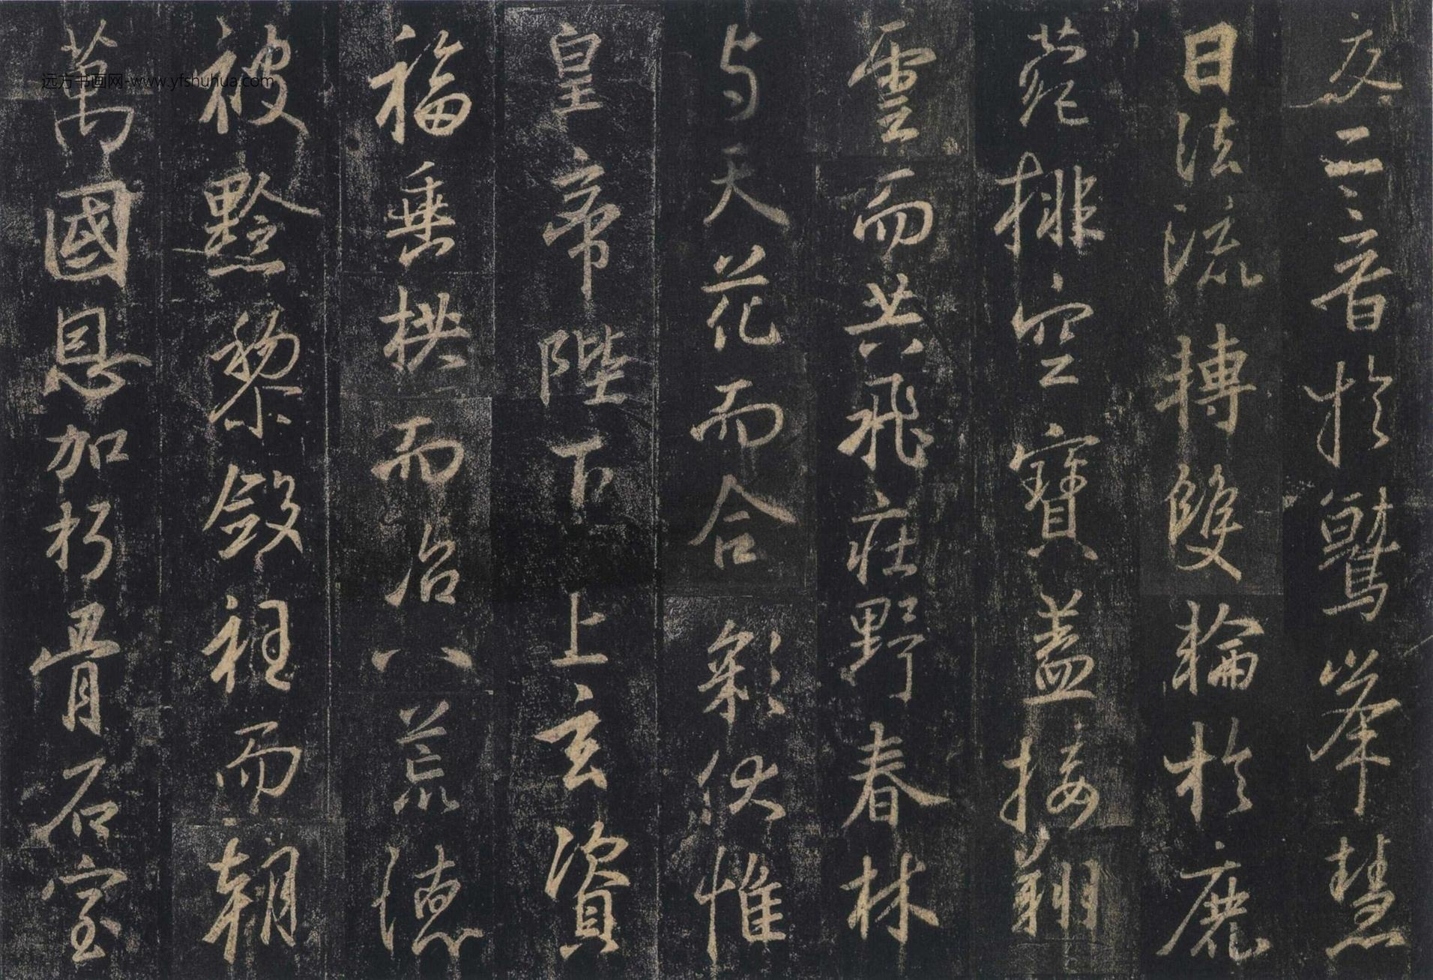 交二音於鷲峯慧
日法流轉雙輪於鹿
菀排空寶蓋接翔
雲而共飛莊野春林
与天花而合彩伏惟
皇帝陛下上玄資
福垂拱而治八荒德
被黔黎斂衽而朝
萬國恩加朽骨石室
远方书画网-www.yfshuhua.com